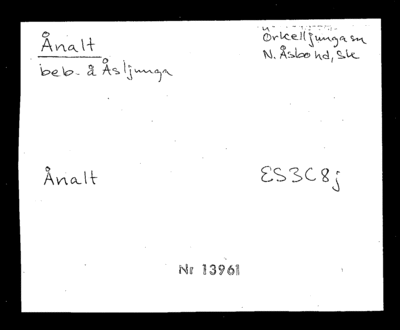 Ånalt
Örkelljunga sn
N. Åsbo hd, Sk
beb. å Åsljunga
Ånalt
ES3C8j
Nr 13961